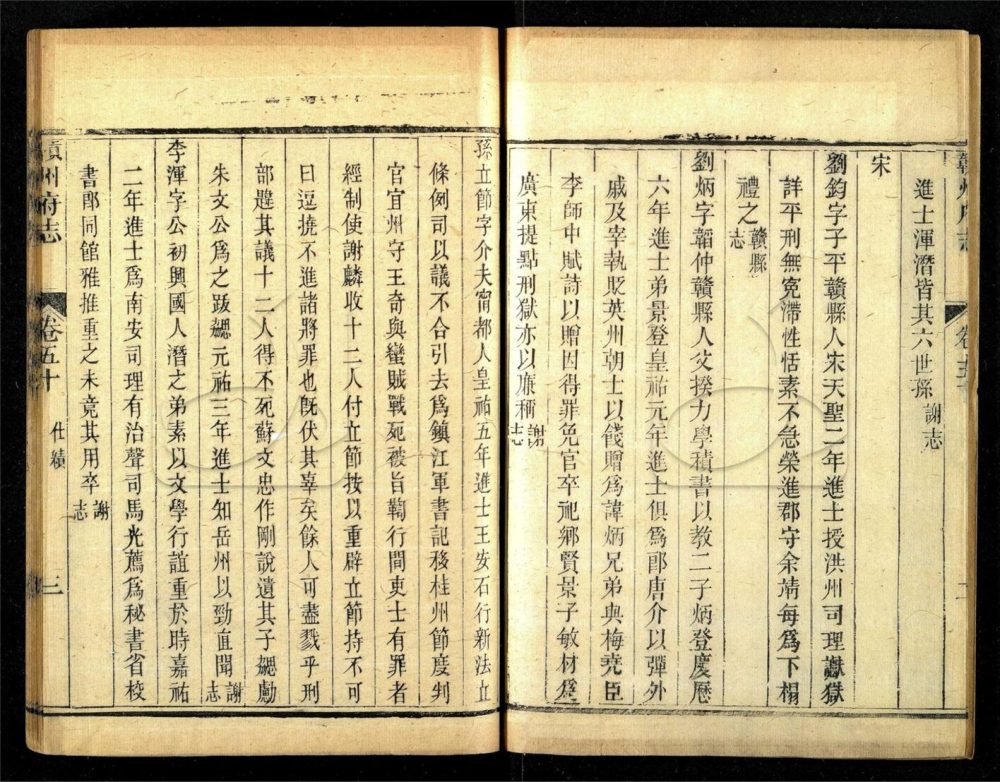 贛州府志
卷五十
二
進士渾潛皆其六世孫謝志
宋
劉鈞字子平贛縣人宋天聖二年進士授洪州司理讞獄
詳平刑無冤滯性恬素不急榮進郡守余靖每爲下榻
禮之贛縣志
劉炳字韜仲贛縣人父揆力學積書以教二子炳登慶厯
六年進士弟景登皇祐元年進士俱爲郎唐介以彈外
戚及宰執貶英州朝士以餞贈爲諱炳兄弟與梅堯臣
李師中賦詩以贈因得罪免官卒祀鄉賢景子敏材爲
廣東提點刑獄亦以廉稱謝志
孫立節字介夫甯都人皇祐五年進士王安石行新法立
條例司以議不合引去爲鎮江軍書記移桂州節度判
官宜州守王奇與蠻賊戰死被旨鞫行間吏士有罪者
經制使謝麟收十二人付立節按以重辟立節持不可
曰逗撓不進諸將罪也旣伏其辜矣餘人可盡戮乎刑
部韙其議十二人得不死蘇文忠作剛說遺其子勰勴
朱文公爲之跋勰元祐三年進士知岳州以勁直聞謝志
李渾字公初興國人潛之弟素以文學行誼重於時嘉祐
二年進士爲南安司理有治聲司馬光薦爲秘書省校
書郎同館雅推重之未竟其用卒謝志
贛州府志
卷五十
仕績
三